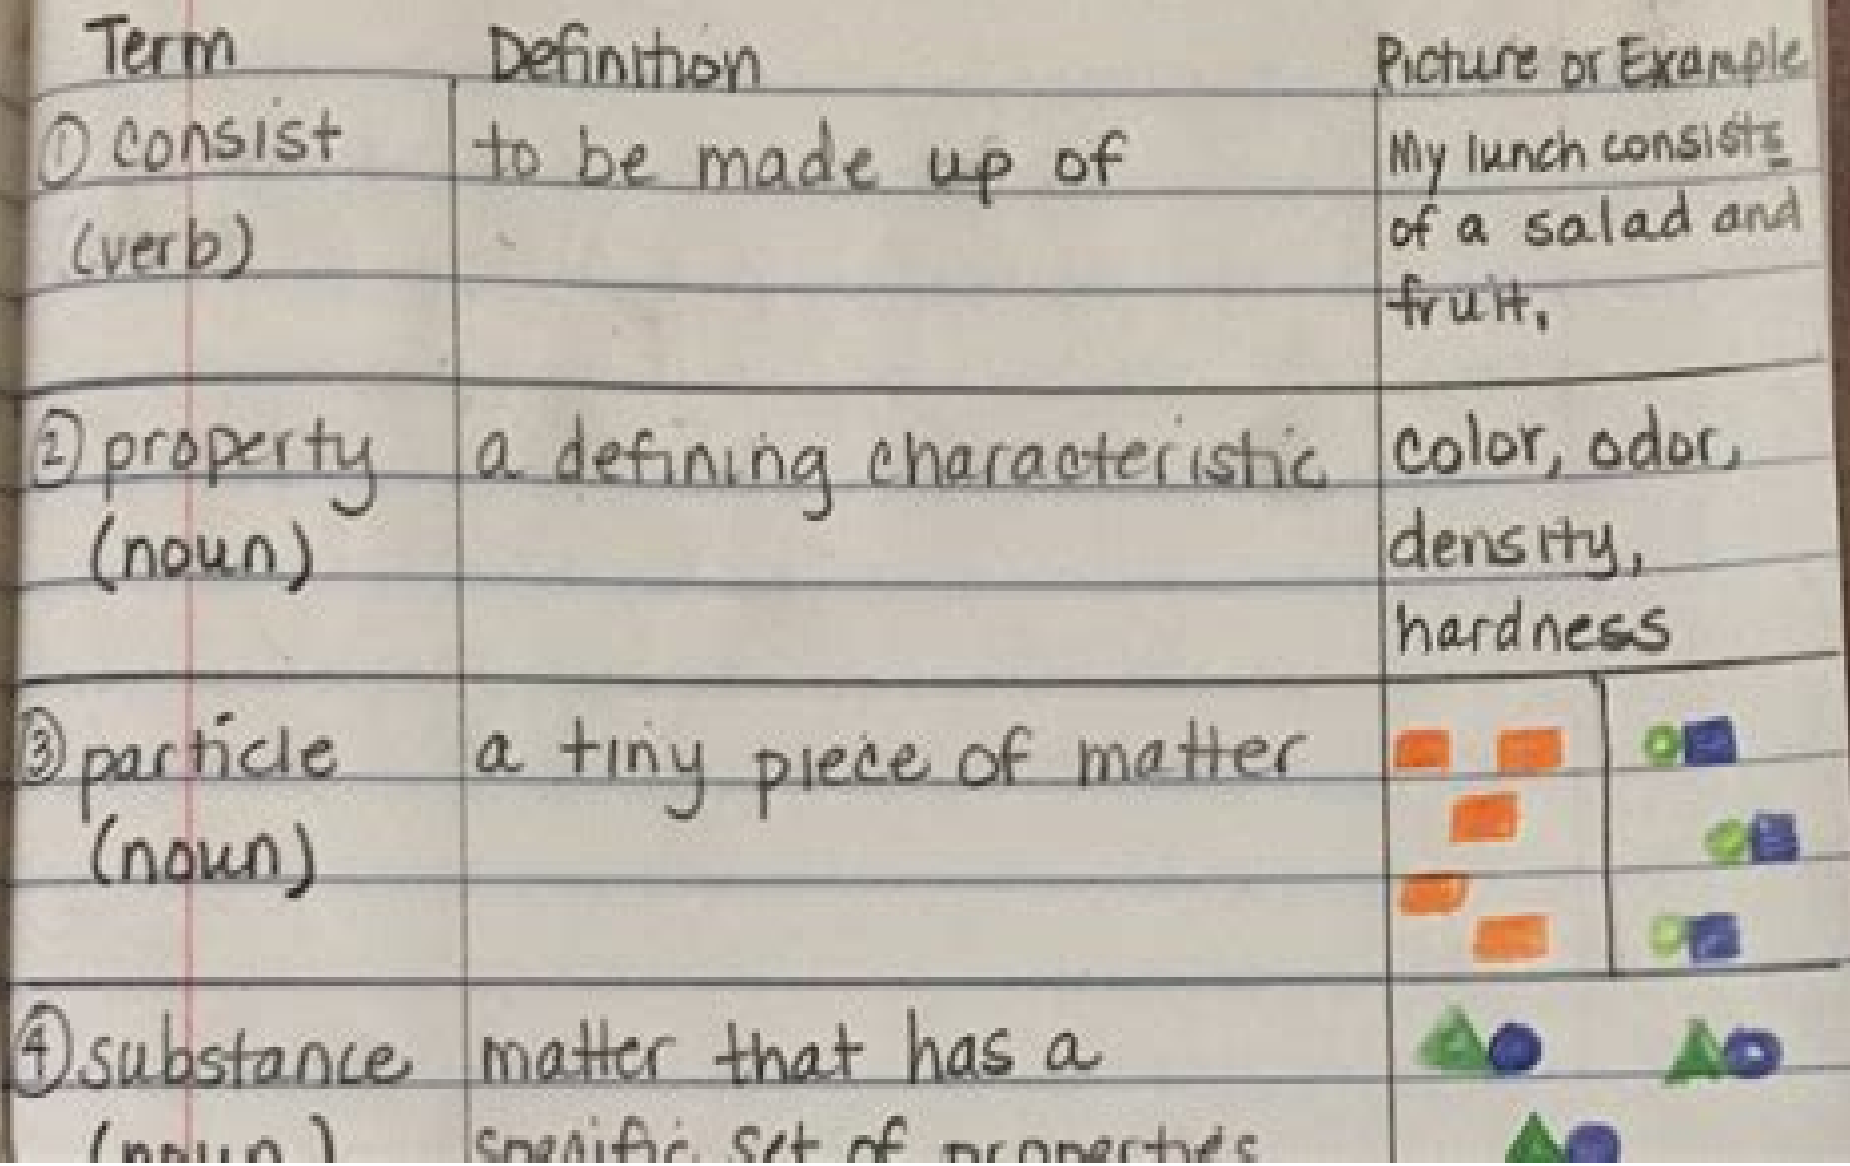 Term Definition Picture or Example
① consist to be made up of My lunch consists
(verb) of a salad and
fruit.
② property a defining characteristic color, odor,
(noun) density,
hardness
③ particle a tiny piece of matter
(noun)
④ substance matter that has a
(noun) specific set of properties